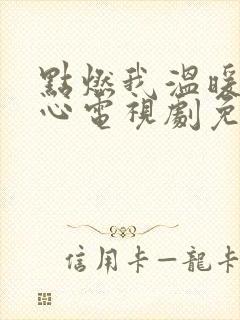 點燃我溫暖
心電視劇免
信用卡—龍卡